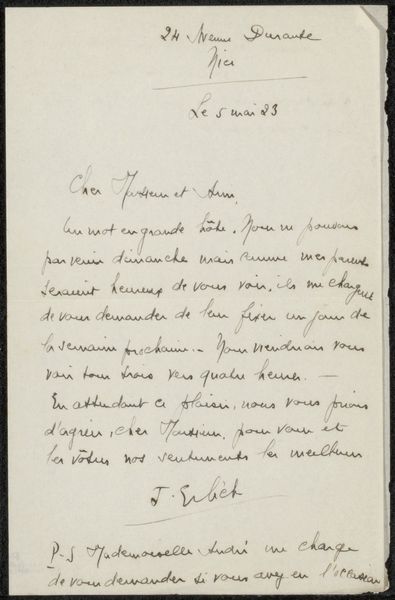 24 Avenue Durante
Nice
Le 5 mai 23
Cher Monsieur et Ami,
Un mot en grande hâte. Nous ne pouvons
pas venir dimanche mais comme mes parents
seraient heureux de vous voir, ils me chargent
de vous demander de leur fixer un jour de
la semaine prochaine. – Nous viendrions vous
voir tous trois vers quatre heures. –
En attendant ce plaisir, nous vous prions
d'agréer, cher Monsieur, pour vous et
les vôtres nos sentiments les meilleurs
P-S Mademoiselle André me charge
de vous demander si vous avez eu l'occasion